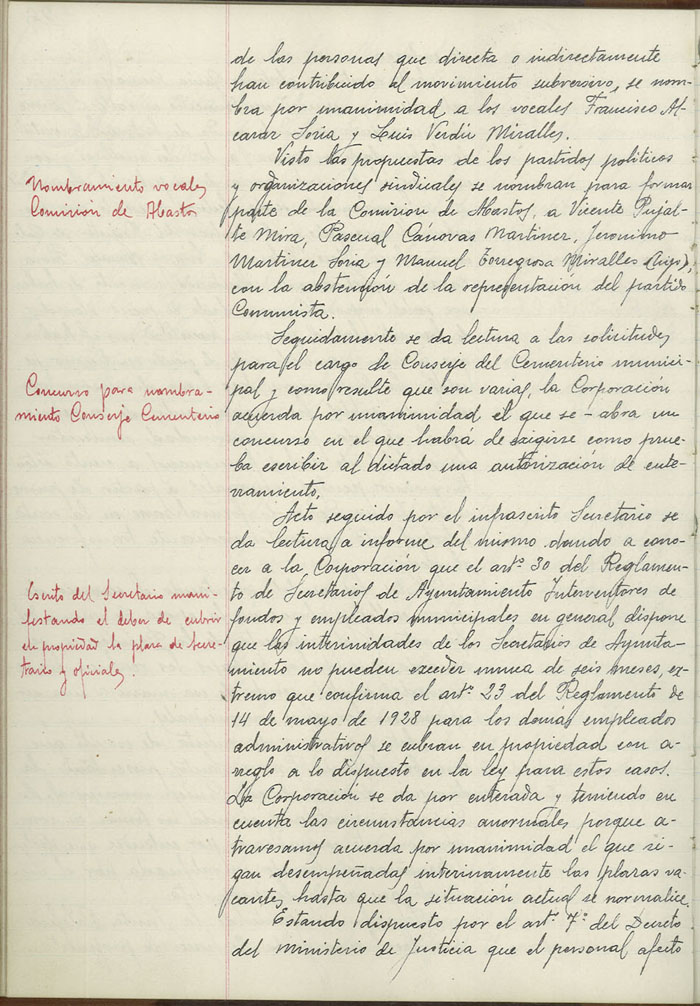 de las personas que directa o indirectamente
han contribuido al movimiento subversivo, se nom-
bra por unanimidad a los vocales Francisco Al-
caraz Soria y Luis Verdú Miralles.
Visto las propuestas de los partidos politicos
y organizaciones sindicales se nombran para formar
parte de la Comision de Abastos, a Vicente Pujal-
te Mira, Pascual Cánovas Martinez, Jeronimo
Martinez Soria y Manuel Torregrosa Miralles
con la abstención de la representación del partido
Comunista.
Nombramiento vocales
Comisión de Abastos
Seguidamente se da lectura a las solicitudes
para el cargo de Conserje del Cementerio munici-
pal y como resulte que son varias, la Corporación
acuerda por unanimidad el que se - abra un
concurso en el que habrá de exigirse como prue-
ba escribir al dictado una autorización de ente-
rramiento.
Concurso para nombra-
miento Conserje Cementerio
Acto seguido por el infrascrito Secretario se
da lectura a informe del mismo dando a cono-
cer a la Corporación que el artº 30 del Reglamen-
to de Secretarios de Ayuntamiento Interventores de
fondos y empleados municipales en general dispone
que las interinidades de los Secretarios de Ayunta-
miento no pueden exceder nunca de seis meses, ex-
tremo que confirma el artº 23 del Reglamento de
14 de mayo de 1928 para los demás empleados
administrativos se cubran en propiedad con a-
rreglo a lo dispuesto en la ley para estos casos.
La Corporación se da por enterada y teniendo en
cuenta las circunstancias anormales, porque a-
travesamos acuerda por unanimidad el que si-
gan desempeñadas interinamente las plazas va-
cantes, hasta que la situación actual se normalice.
Escrito del Secretario mani-
festando el deber de cubrir
en propiedad la plaza de Secre-
tario y oficiales.
Estando dispuesto por el artº 7º del Decreto
del Ministerio de Justicia que el personal afecto